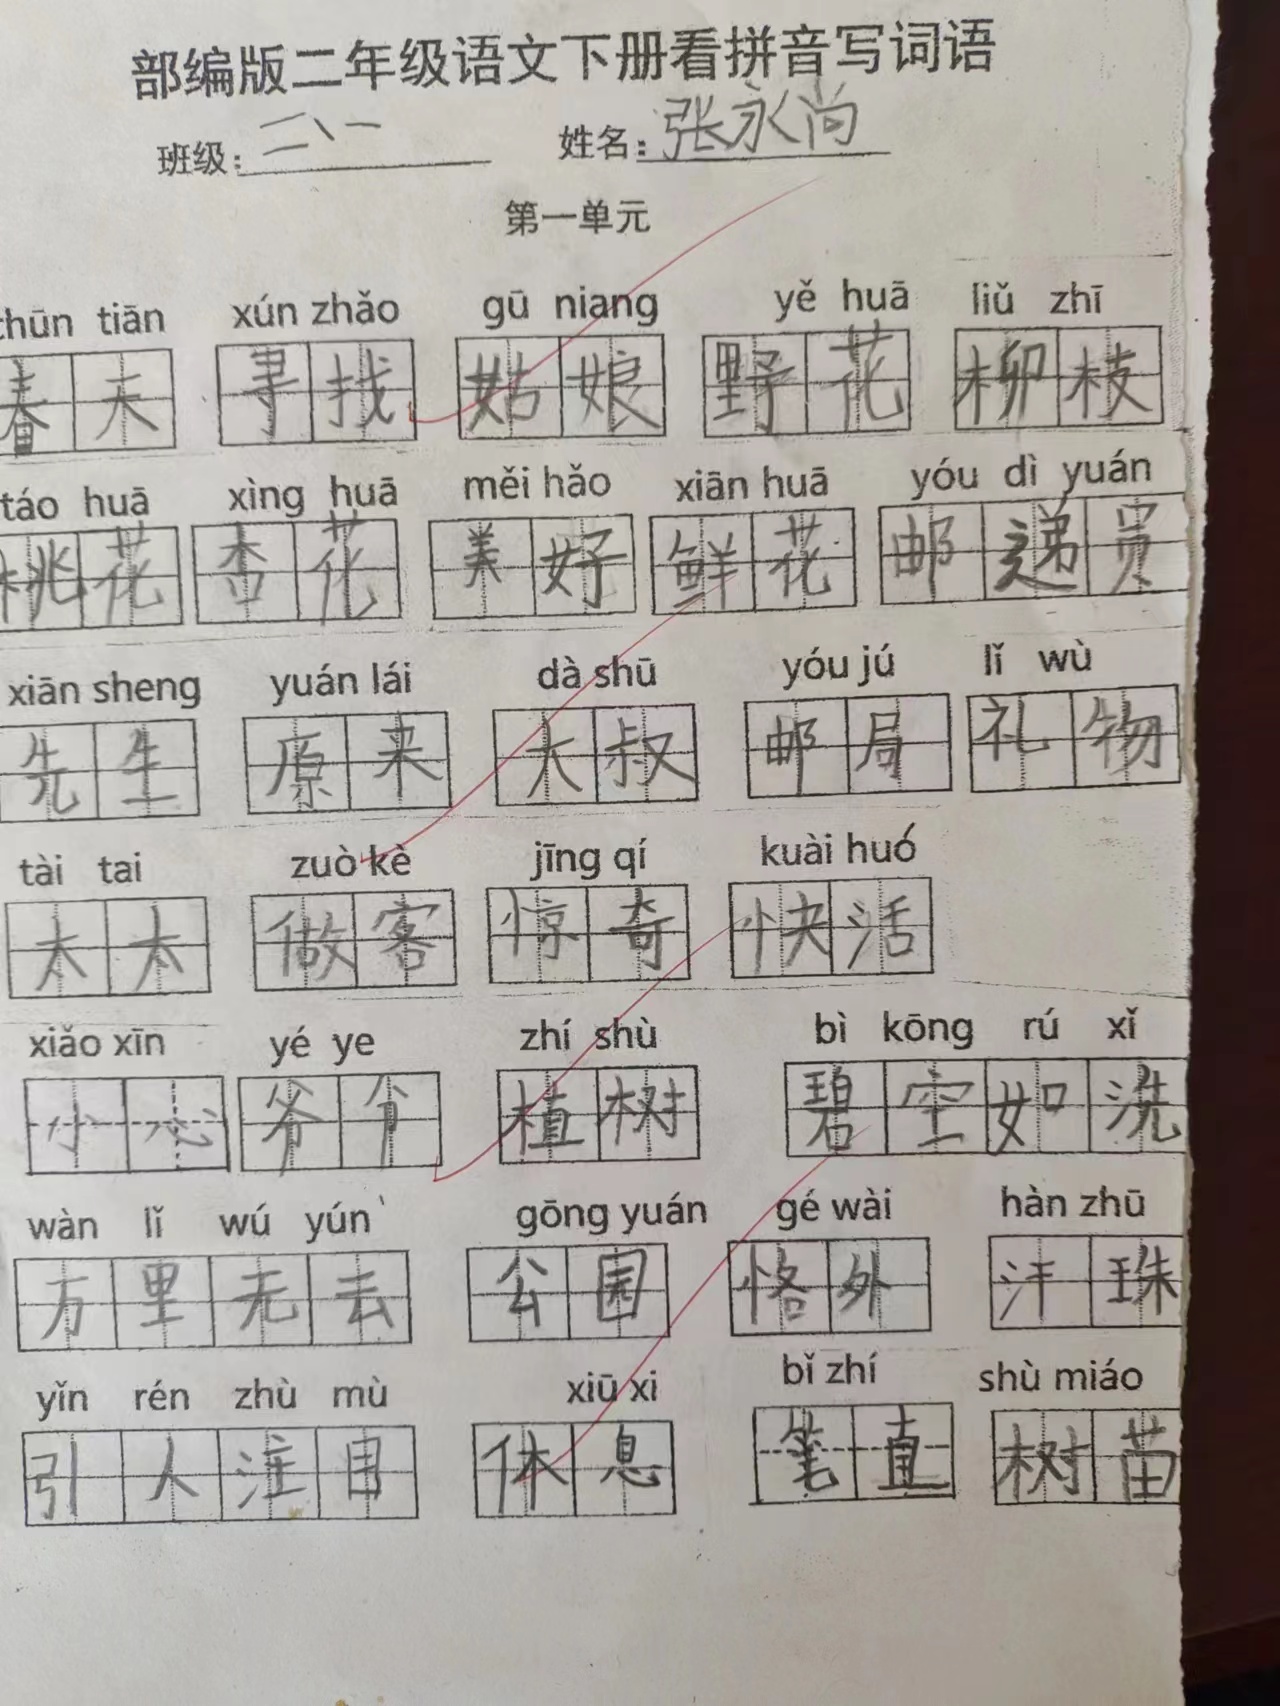 部编版二年级语文下册看拼音写词语
班级：二、一 姓名：张永尚
第一单元
chūn tiān xún zhǎo gū niang yě huā liǔ zhī
春天 寻找 姑娘 野花 柳枝
táo huā xìng huā měi hǎo xiān huā yóu dì yuán
桃花 杏花 美好 鲜花 邮递员
xiān sheng yuán lái dà shū yóu jú lǐ wù
先生 原来 大叔 邮局 礼物
tài tai zuò kè jīng qí kuài huó
太太 做客 惊奇 快活
xiǎo xīn yé ye zhí shù bì kōng rú xǐ
小心 爷爷 植树 碧空如洗
wàn lǐ wú yún gōng yuán gé wài hàn zhū
万里无云 公园 格外 汗珠
yǐn rén zhù mù xiū xi bǐ zhí shù miáo
引人注目 休息 笔直 树苗